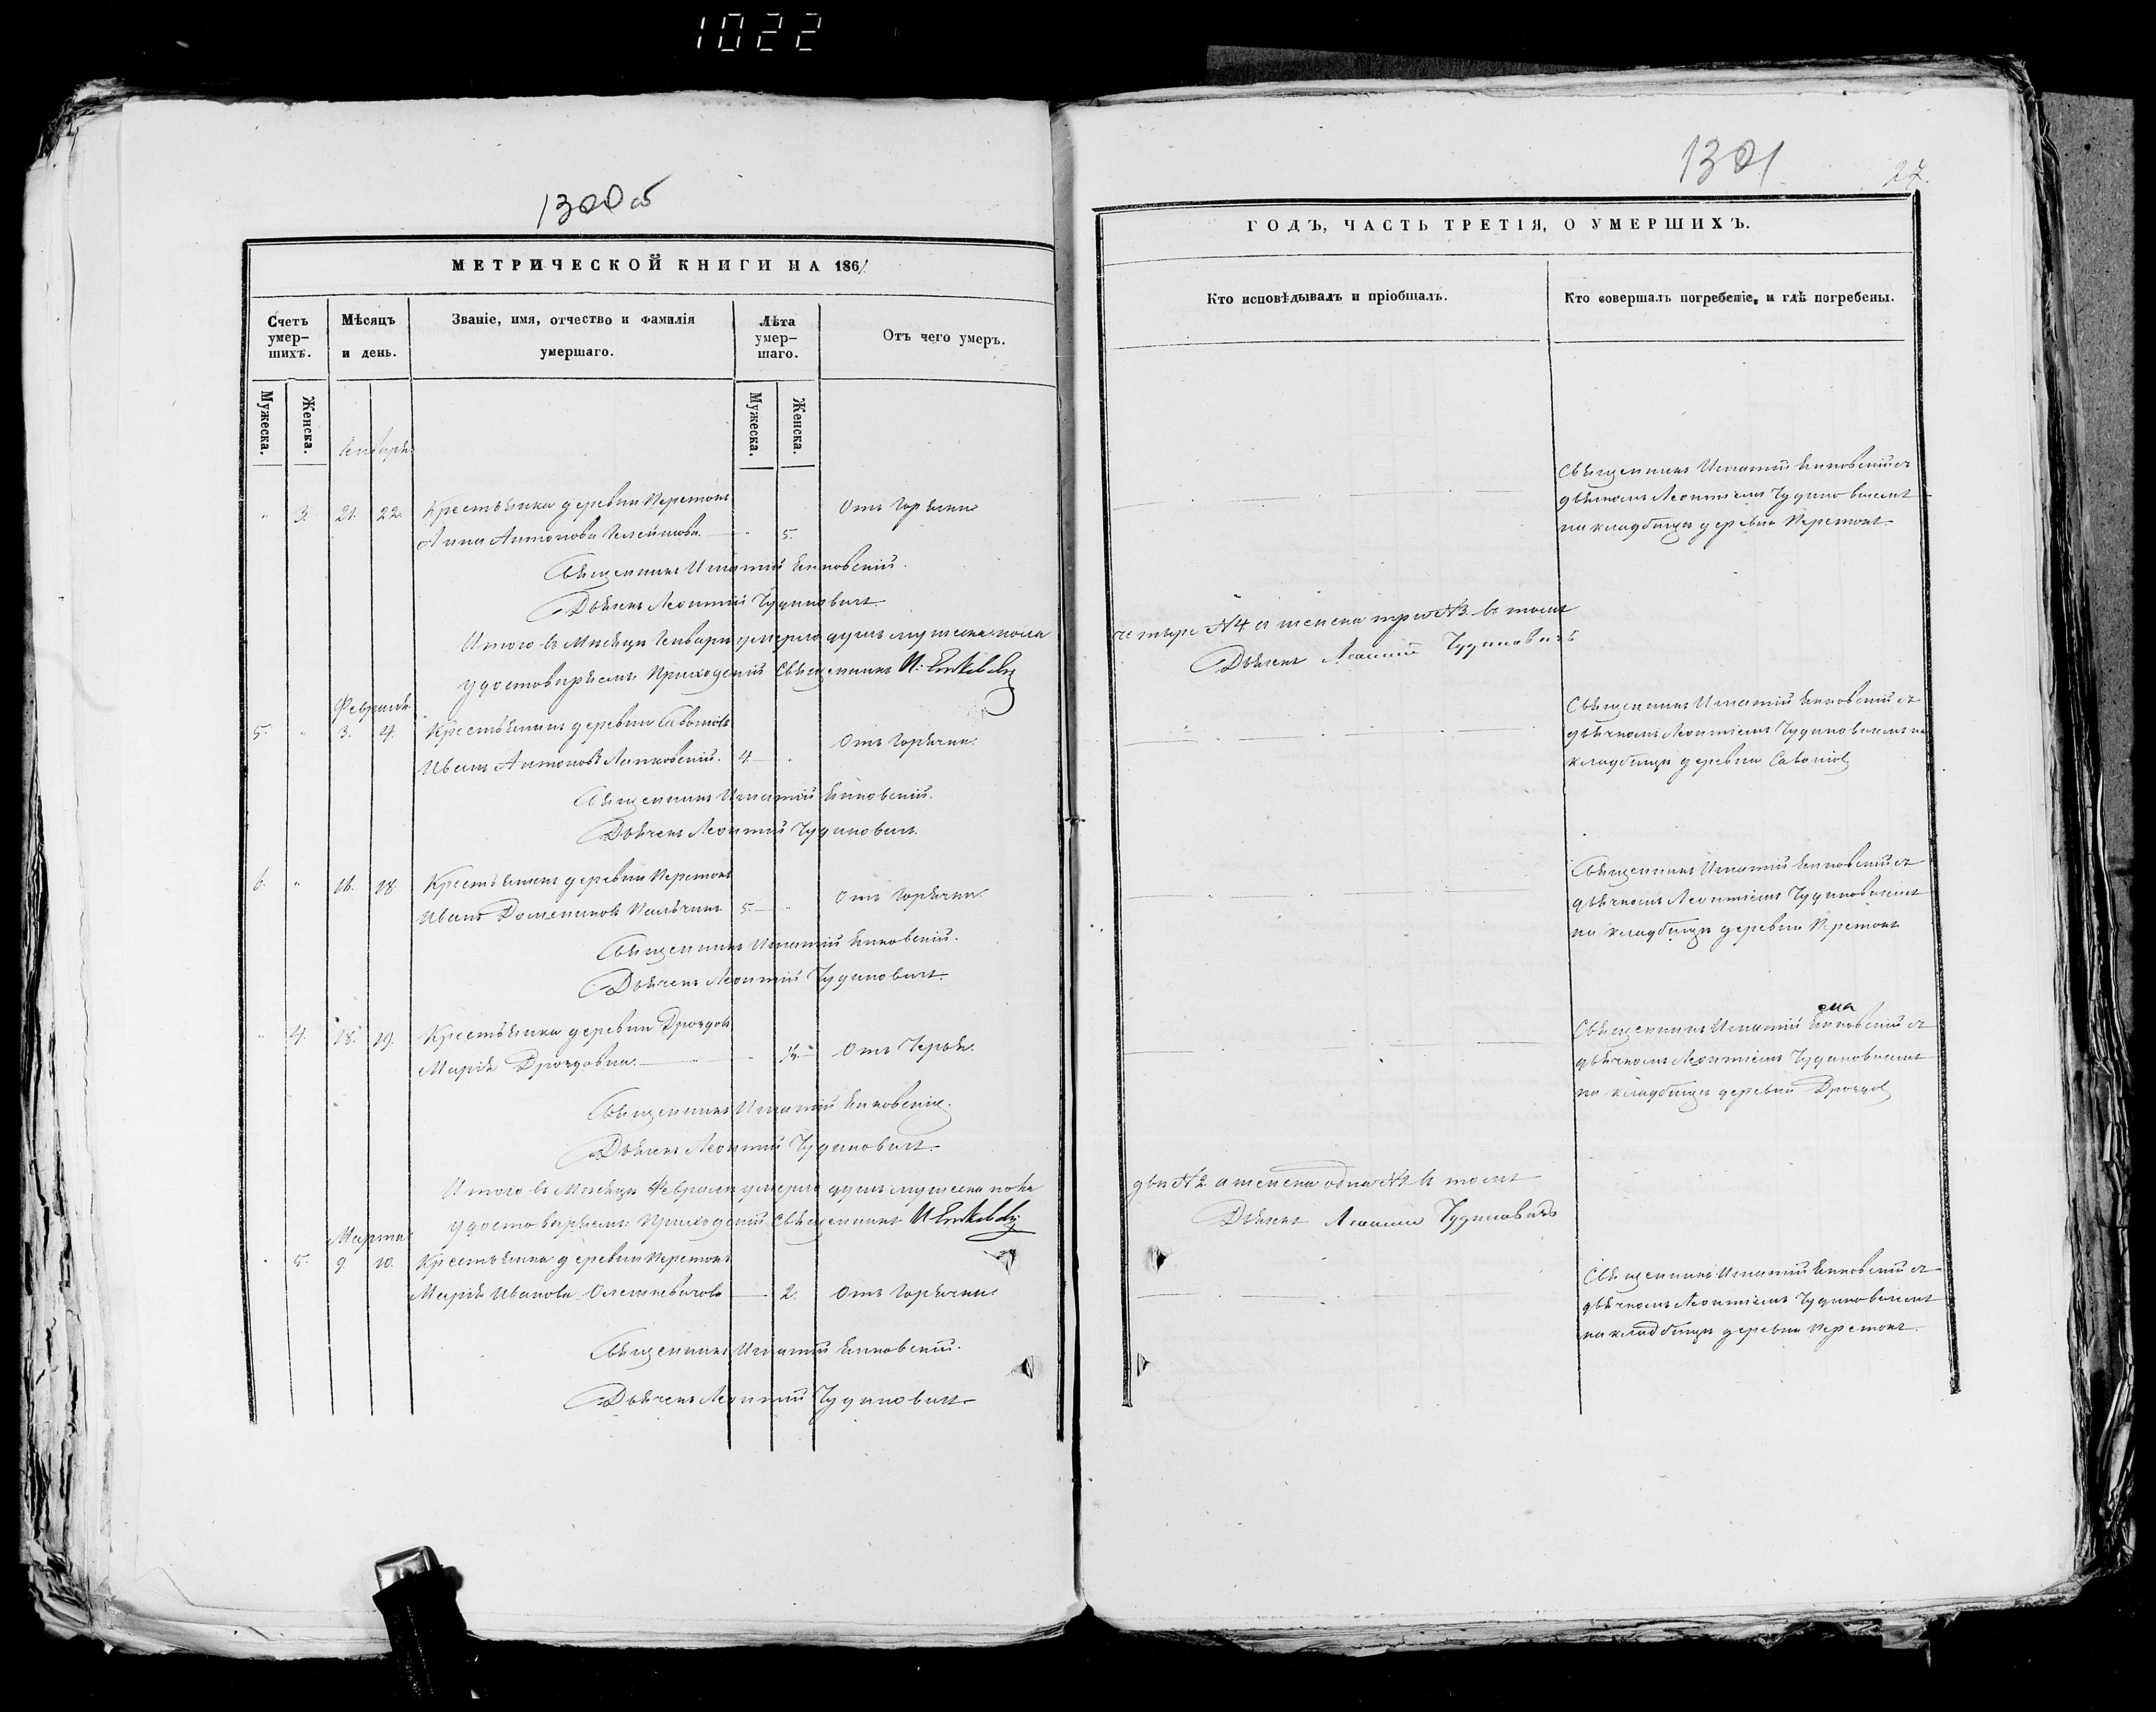 1022
1300 об
МЕТРИЧЕСКОЙ КНИГИ НА 1861
Счетъ умер-шихъ.
Мѣсяцъ и день.
Званіе, имя, отчество и фамилія умершаго.
Лѣта умер-шаго.
Отъ чего умеръ.
Мужеска.
Женска.
Мужеска.
Женска.
Генварь
" 3. 21. 22. Крестьянка деревни Перетокъ
Анна Антонова 5. Отъ горячки
Священникъ Игнатій Енковскій.
Дьячекъ Леонтій Чудиновичъ
Итого въ Мѣсяцѣ Генварѣ умерло душъ мужеска пола
удостовѣряемъ Приходскій Священникъ И. Енковскій
Февраль
5. " 3. 4. Крестьянинъ деревни
Иванъ Антоновъ 4. Отъ горячки.
Священникъ Игнатій Енковскій.
Дьячекъ Леонтій Чудиновичъ.
6. " 16. 18. Крестьянинъ деревни Перетокъ
Иванъ 5. Отъ горячки.
Священникъ Игнатій Енковскій.
Дьячекъ Леонтій Чудиновичъ.
" 4. 18. 19. Крестьянка деревни Дроздовъ
Марія Дроздовна. Отъ
Священникъ Игнатій Енковскій.
Дьячекъ Леонтій Чудиновичъ.
Итого въ Мѣсяцѣ Февралѣ умерло душъ мужеска пола
удостовѣряемъ: Приходскій Священникъ И Енковскій
Мартъ
" 5. 9. 10. Крестьянка деревни Перетокъ
Марія Иванова 2. Отъ горячки
Священникъ Игнатій Енковскій.
Дьячекъ Леонтій Чудиновичъ
1301
27.
ГОДЪ, ЧАСТЬ ТРЕТІЯ, О УМЕРШИХЪ.
Кто исповѣдывалъ и пріобщалъ.
Кто совершалъ погребеніе, и гдѣ погребены.
Священникъ Игнатій Енковскій съ
дьячкомъ Леонтіемъ Чудиновичемъ
на кладбищѣ деревни Перетокъ
четыре №4 а женска три №3. въ томъ
Дьячекъ Леонтій Чудиновичъ
Священникъ Игнатій Енковскій съ
дьячкомъ Леонтіемъ Чудиновичемъ на
кладбищѣ деревни
Священникъ Игнатій Енковскій съ
дьячкомъ Леонтіемъ Чудиновичемъ
на кладбищѣ деревни Перетокъ
Священникъ Игнатій Енковскій съ
дьячкомъ Леонтіемъ Чудиновичемъ
на кладбищѣ деревни Дроздов
два №2 а женска одна №1 въ томъ
Дьячекъ Леонтій Чудиновичъ
Священникъ Игнатій Енковскій съ
дьячкомъ Леонтіемъ Чудиновичемъ
на кладбищѣ деревни Перетокъ.